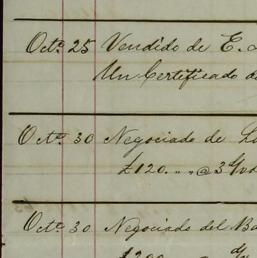 Octe. 25 Vendido de E.
Un Certificado de
Octe. 30 Negociado de Lo
£120. " " @ 3
Octe. 30 Negociado del Ba
£200